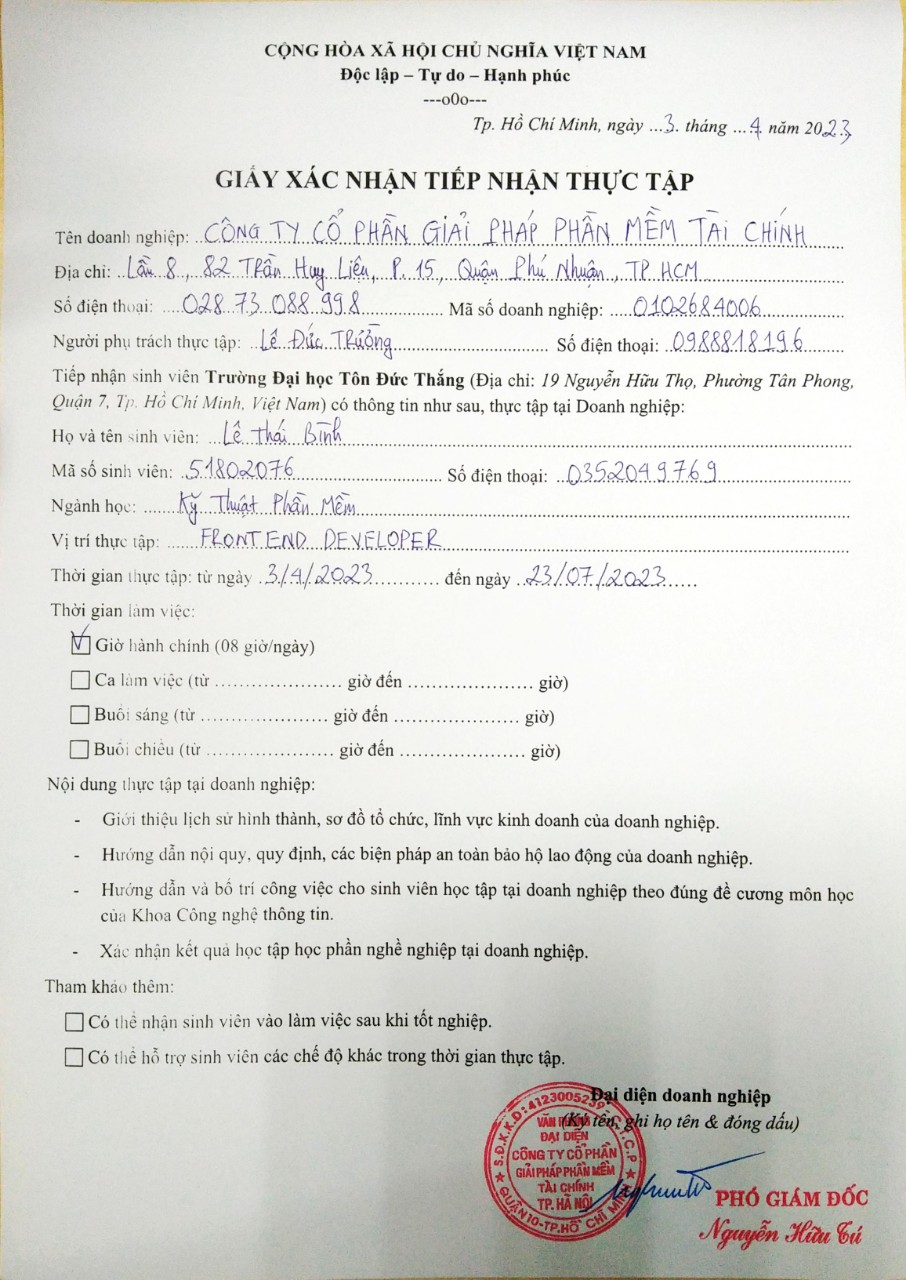 CỘNG HÒA XÃ HỘI CHỦ NGHĨA VIỆT NAM
Độc lập – Tự do – Hạnh phúc
---o0o---
Tp. Hồ Chí Minh, ngày ...3. tháng ...4 năm 2023
GIẤY XÁC NHẬN TIẾP NHẬN THỰC TẬP
Tên doanh nghiệp: CÔNG TY CỔ PHẦN GIẢI PHÁP PHẦN MỀM TÀI CHÍNH
Địa chỉ: Lầu 8, 82 Trần Huy Liệu, P. 15, Quận Phú Nhuận, TP HCM
Số điện thoại: 028.73.088.998 Mã số doanh nghiệp: 0102684006
Người phụ trách thực tập: Lê Đức Trưởng Số điện thoại: 0988818196
Tiếp nhận sinh viên Trường Đại học Tôn Đức Thắng (Địa chỉ: 19 Nguyễn Hữu Thọ, Phường Tân Phong,
Quận 7, Tp. Hồ Chí Minh, Việt Nam) có thông tin như sau, thực tập tại Doanh nghiệp:
Họ và tên sinh viên: Lê Thái Bình
Mã số sinh viên: 51802076 Số điện thoại: 0352049769
Ngành học: Kỹ Thuật Phần Mềm
Vị trí thực tập: FRONTEND DEVELOPER
Thời gian thực tập: từ ngày 3/4/2023 đến ngày 23/07/2023
Thời gian làm việc:
Giờ hành chính (08 giờ/ngày)
Ca làm việc (từ ...................... giờ đến ...................... giờ)
Buổi sáng (từ ...................... giờ đến ...................... giờ)
Buổi chiều (từ ...................... giờ đến ...................... giờ)
Nội dung thực tập tại doanh nghiệp:
- Giới thiệu lịch sử hình thành, sơ đồ tổ chức, lĩnh vực kinh doanh của doanh nghiệp.
- Hướng dẫn nội quy, quy định, các biện pháp an toàn bảo hộ lao động của doanh nghiệp.
- Hướng dẫn và bố trí công việc cho sinh viên học tập tại doanh nghiệp theo đúng đề cương môn học
của Khoa Công nghệ thông tin.
- Xác nhận kết quả học tập học phần nghề nghiệp tại doanh nghiệp.
Tham khảo thêm:
Có thể nhận sinh viên vào làm việc sau khi tốt nghiệp.
Có thể hỗ trợ sinh viên các chế độ khác trong thời gian thực tập.
Đại diện doanh nghiệp
(Ký tên, ghi họ tên & đóng dấu)
S.Đ.K.K.D: 4123005239 - C.T.C.P
VĂN PHÒNG
ĐẠI DIỆN
CÔNG TY CỔ PHẦN
GIẢI PHÁP PHẦN MỀM
TÀI CHÍNH
TP. HÀ NỘI
QUẬN 10-TP.HỒ CHÍ MINH
PHÓ GIÁM ĐỐC
Nguyễn Hữu Tú